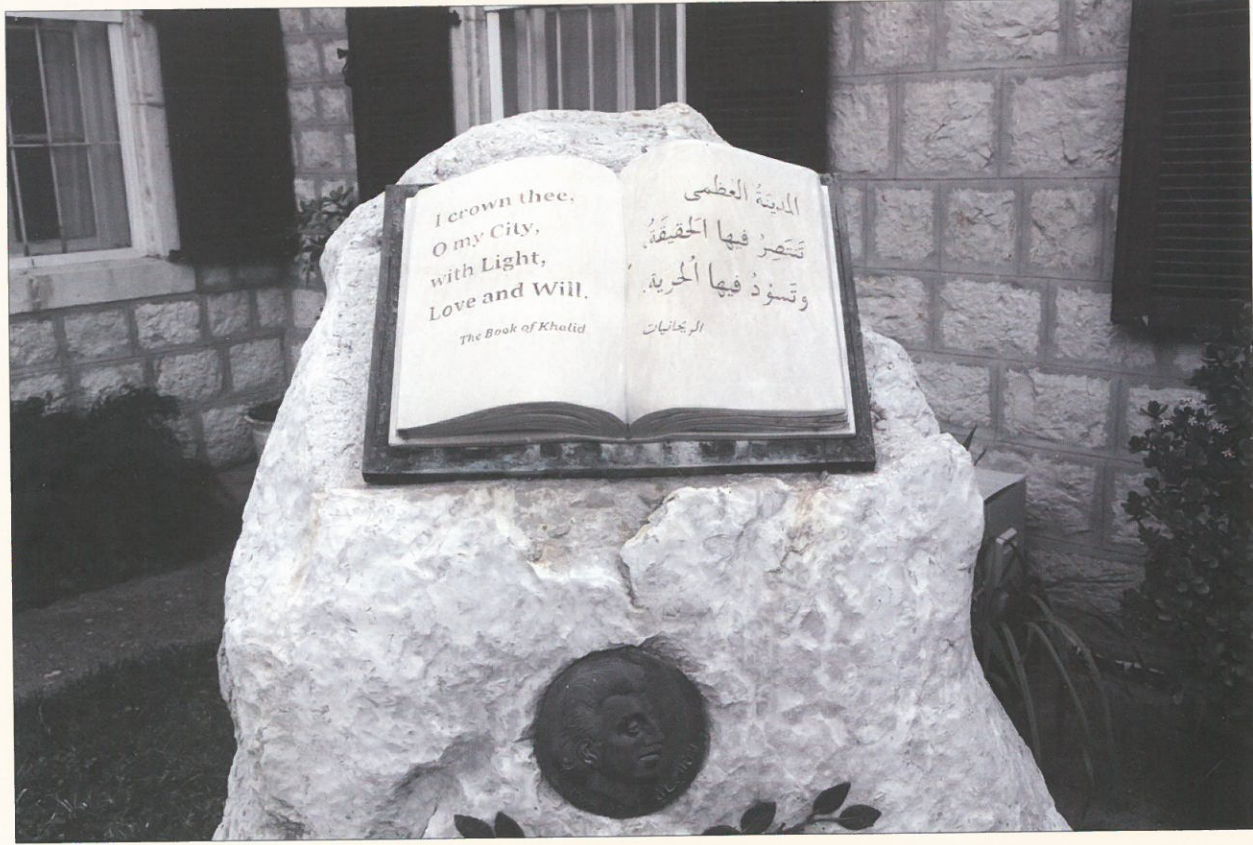 I crown thee,
O my City,
with Light,
Love and Will.
The Book of Khalid
المدينَةُ العظمى
تَنتَصِرُ فيها اَلحَقيقَةُ،
وتَسوْدُ فيها اُلحرية.
الريحانيات